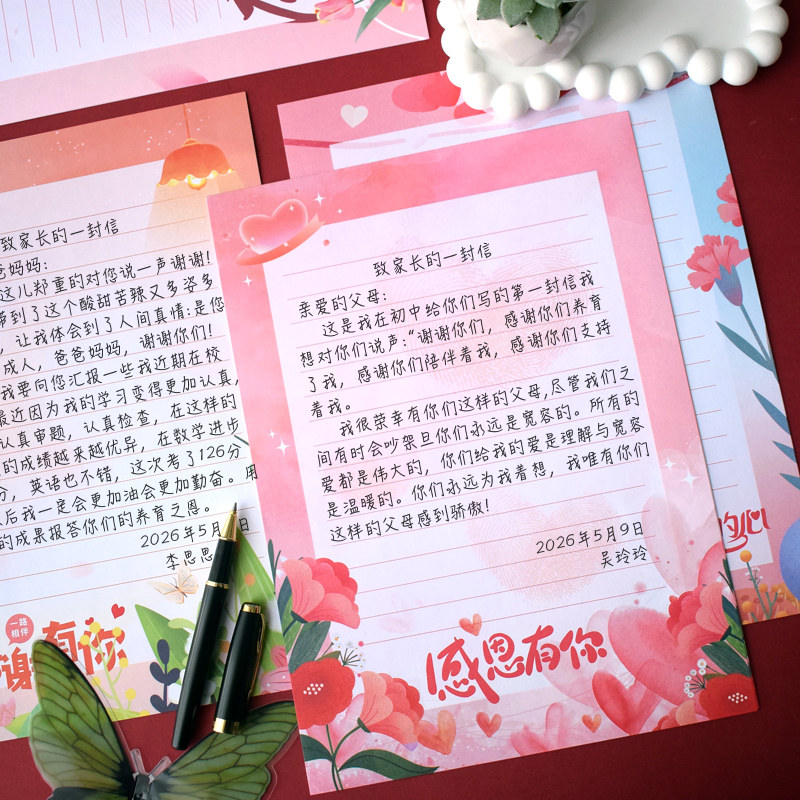 致家长的一封信
爸妈妈:
这儿郑重的对您说一声谢谢!
带到了这个酸甜苦辣又多姿多
,让我体会到了人间真情:是您
成人,爸爸妈妈,谢谢你们!
我要向您汇报一些我近期在校
最近因为我的学习变得更加认真,
认真审题,认真检查,在这样的
的成绩越来越优异,在数学进步
分,英语也不错,这次考了126分
后我一定会更加油会更加勤奋。用
的成果报答你们的养育之恩。
2026年5月
李思思
一路
相伴
谢有你
致家长的一封信
亲爱的父母:
这是我在初中给你们写的第一封信我
想对你们说声:“谢谢你们,感谢你们养育
了我,感谢你们陪伴着我,感谢你们支持
着我。
我很荣幸有你们这样的父母,尽管我们之
间有时会吵架旦你们永远是宽容的。所有的
爱都是伟大的,你们给我的爱是理解与宽容
是温暖的。你们永远为我着想,我唯有你们
这样的父母感到骄傲!
2026年5月9日
吴玲玲
感恩有你
的心